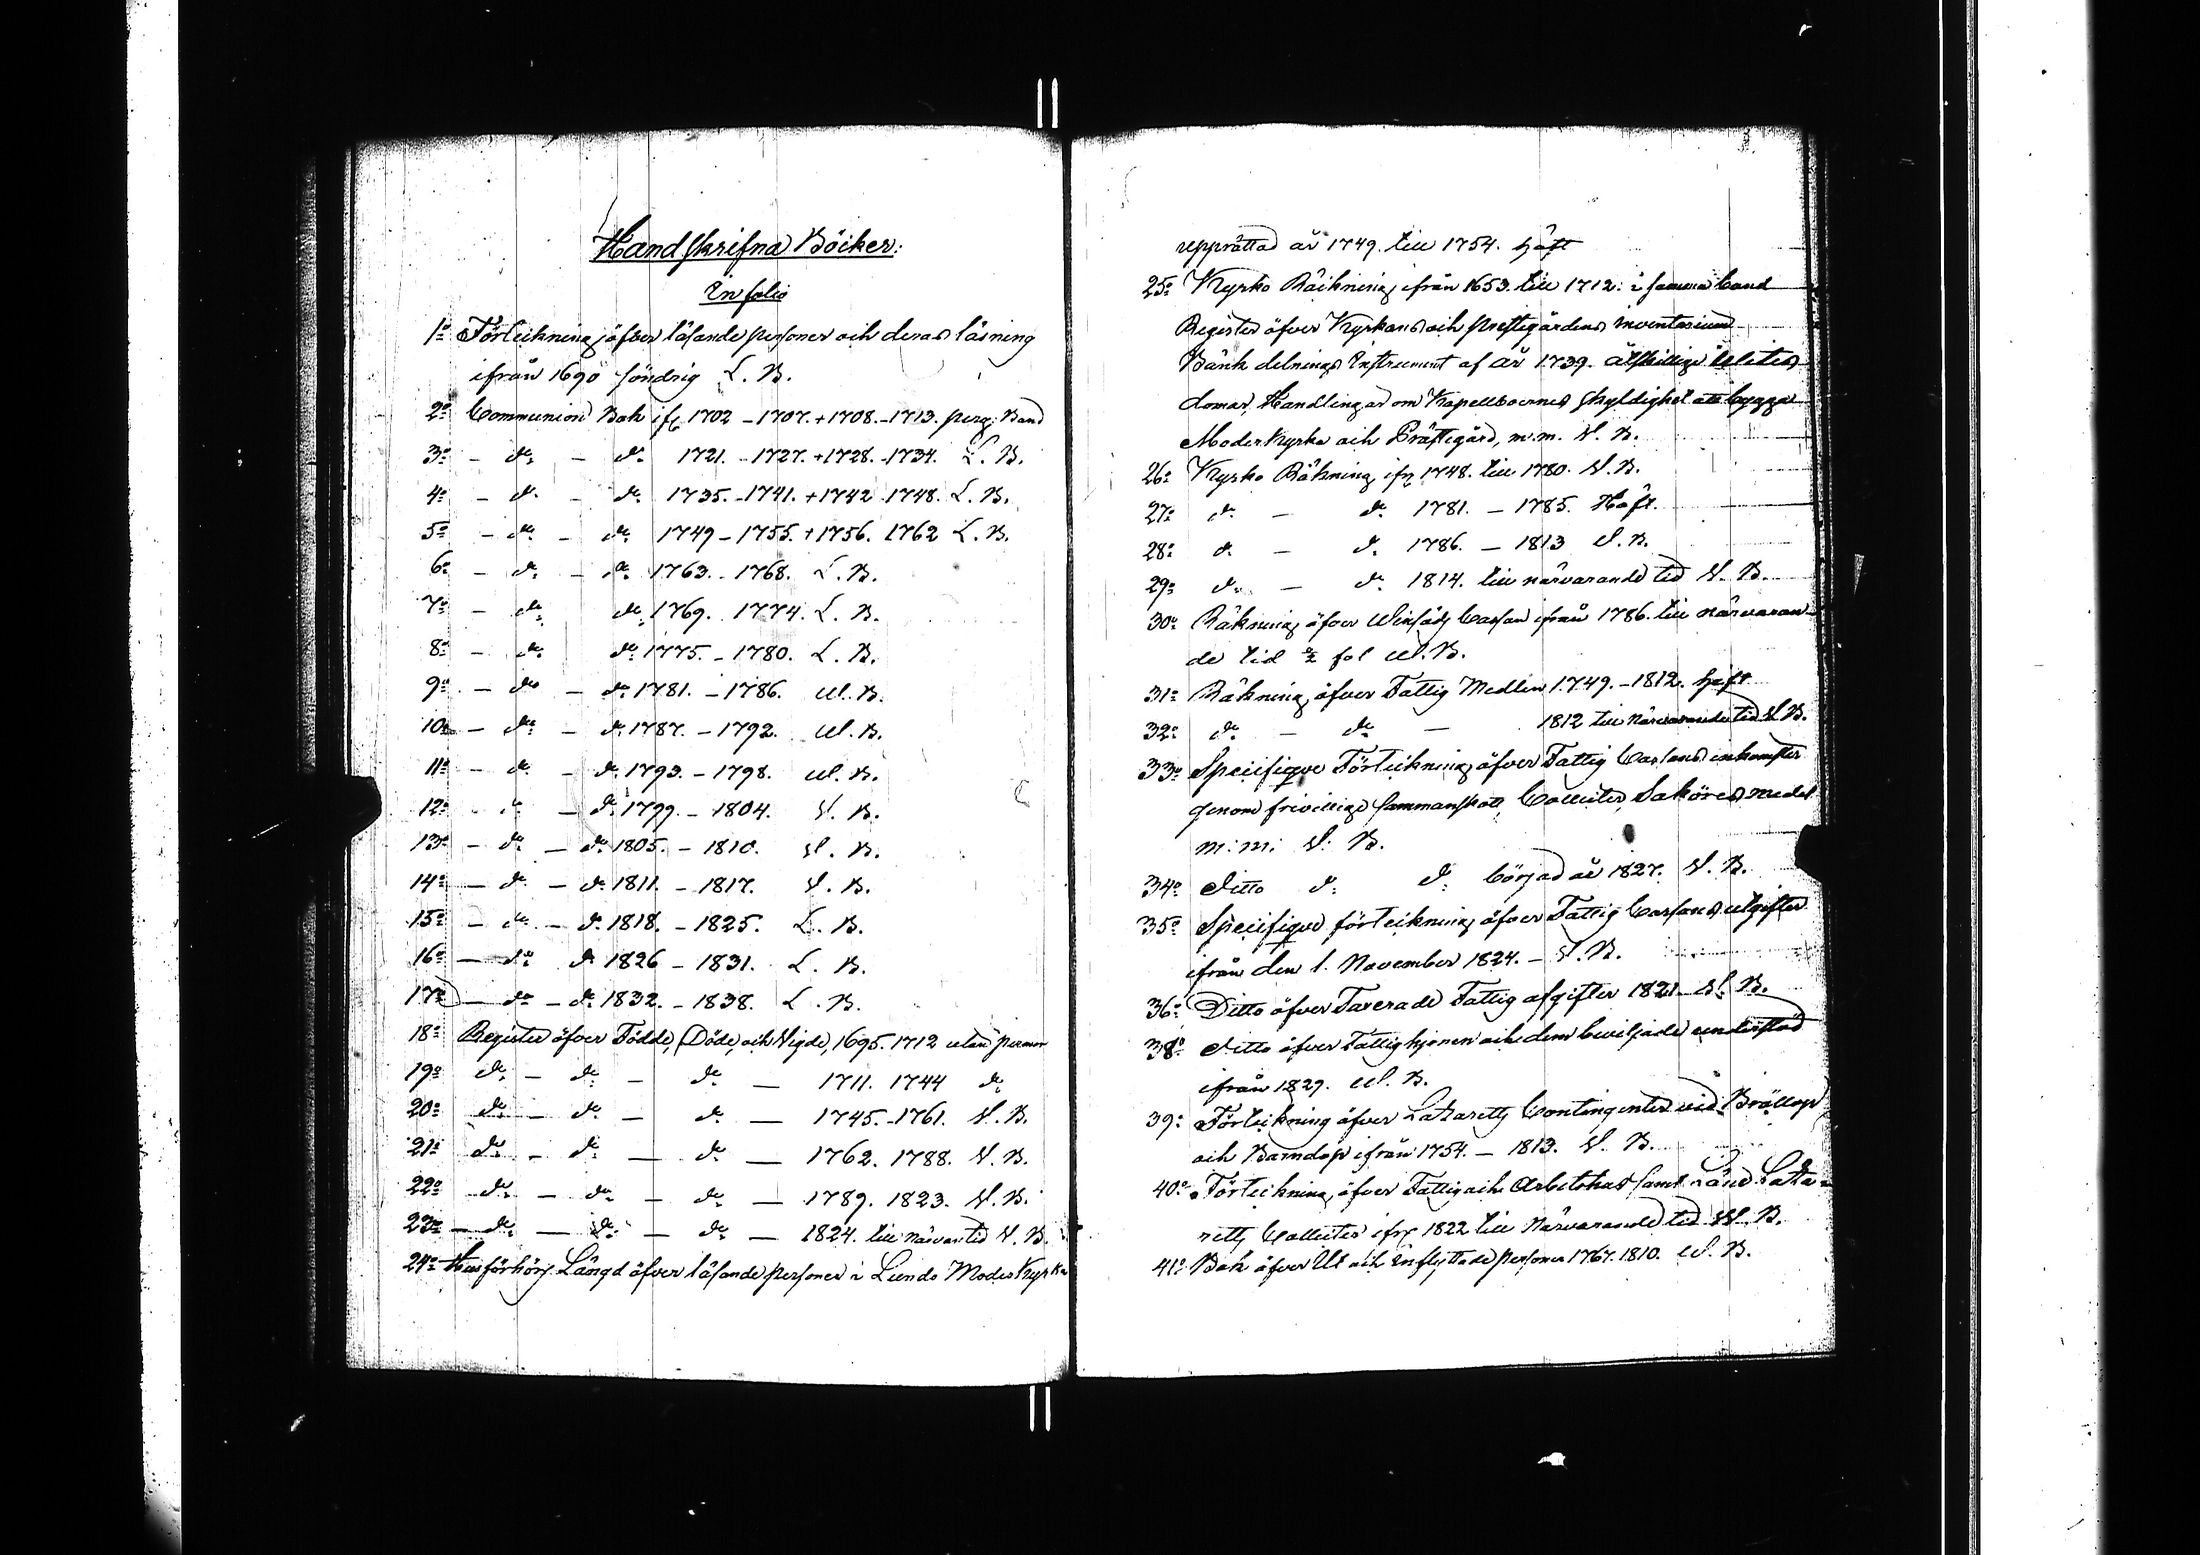 Handskrifna Böcker:
In folio
1o Förteckning öfver läsande personer och deras läsning
ifrån 1690 söndrig L. B.
2o Communion Bok ifr 1702 - 1707. + 1708. - 1713. perg: Band
3o - do - do 1721. - 1727. + 1728. - 1734. L. B.
4o - do - do 1735. - 1741. + 1742 - 1748. L. B.
5o - do - do 1749 - 1755. + 1756. 1762 L. B.
6o - do - do 1763. - 1768. L. B.
7o - do do 1769. 1774. L. B.
8o - do do 1775. - 1780. L. B.
9o - do - do 1781. - 1786. W. B.
10o - do - do 1787. - 1792. W. B.
11o - do - do 1793. - 1798. W. B.
12o - do - do 1799. - 1804. W. B.
13o - do - do 1805. - 1810. W. B.
14o - do - do 1811. - 1817. W. B.
15o - do - do 1818. - 1825. L. B.
16o - do do 1826 - 1831. L. B.
17o - do - do 1832. - 1838. L. B.
18o Register öfver Födde, Döde, och Vigde, 1695. 1712 utan permar
19o do - do - do - 1711. 1744 do
20o do - do - do - 1745. - 1761. W. B.
21o do - do - do - 1762. 1788. W. B.
22o do - do - do - 1789. 1823. W. B.
23o - do - do - do - 1824. till närvar tid W. B.
24o Husförhörs Längd öfver läsande personer i Lundo Moder Kyrka
upprättad år 1749. till 1754. häft
25o Kyrko Räckning ifrån 1653. till 1712. i samma band
Register öfver Kyrkans och prestegårdens inventarium
Bänk delnings Instrument af år 1739. åtskillige
domar, Handlingar om Kapellboernes skyldighet att bygga
Moderkyrka och Prästegård, m.m. W. B.
26o Kyrko Räkning ifr 1748. till 1780. W. B.
27o do - do 1781. - 1785. Häft.
28o do - do 1786. - 1813 W. B.
29o do - do 1814. till närvarande tid W. B.
30o Räkning öfver Winsäds Cassan ifrån 1786. till närvaran-
de tid fol W. B.
31o Räkning öfver Fattig Medlen 1749. - 1812. häft
32o do - do - 1812 till närvarande tid W. B.
33o Specifique Förteckning öfver Fattig Cassans inkomster
genom frivillige sammanskott, Collecter, Saköres medel
m: m: W. B.
34o Ditto do do börjad år 1827. W. B.
35o Specifique förteckning öfver Fattig Cassans utgifter
ifrån den 1. November 1824. - W. B.
36o Ditto öfver Taxerade Fattig afgifter 1821 W. B.
38o Ditto öfver Fattighjonen och dem beviljade understöd
ifrån 1829. W. B.
39o Förteckning öfver Lazaretts Contingenter vid Bröllop
och Barndop ifrån 1754. - 1813. W. B.
40o Förteckning öfver Fattig och Arbetshus samt Länd Laza-
retts Collecter ifr 1822 till närvarande tid W. B.
41o Bok öfver Ut och Inflyttade personer 1767. 1810. W. B.